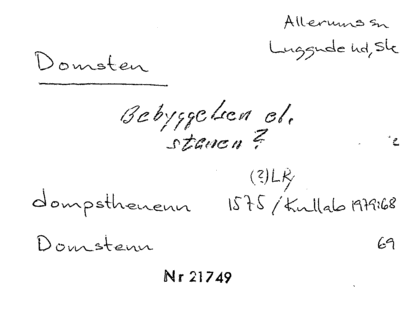 Allerums sn
Luggude hd, Sk
Domsten
Bebyggelsen el.
stenen?
(?) LRj
dompsthenenn 1575 / Kullabo 1979:68
Domstenn 69
Nr 21749